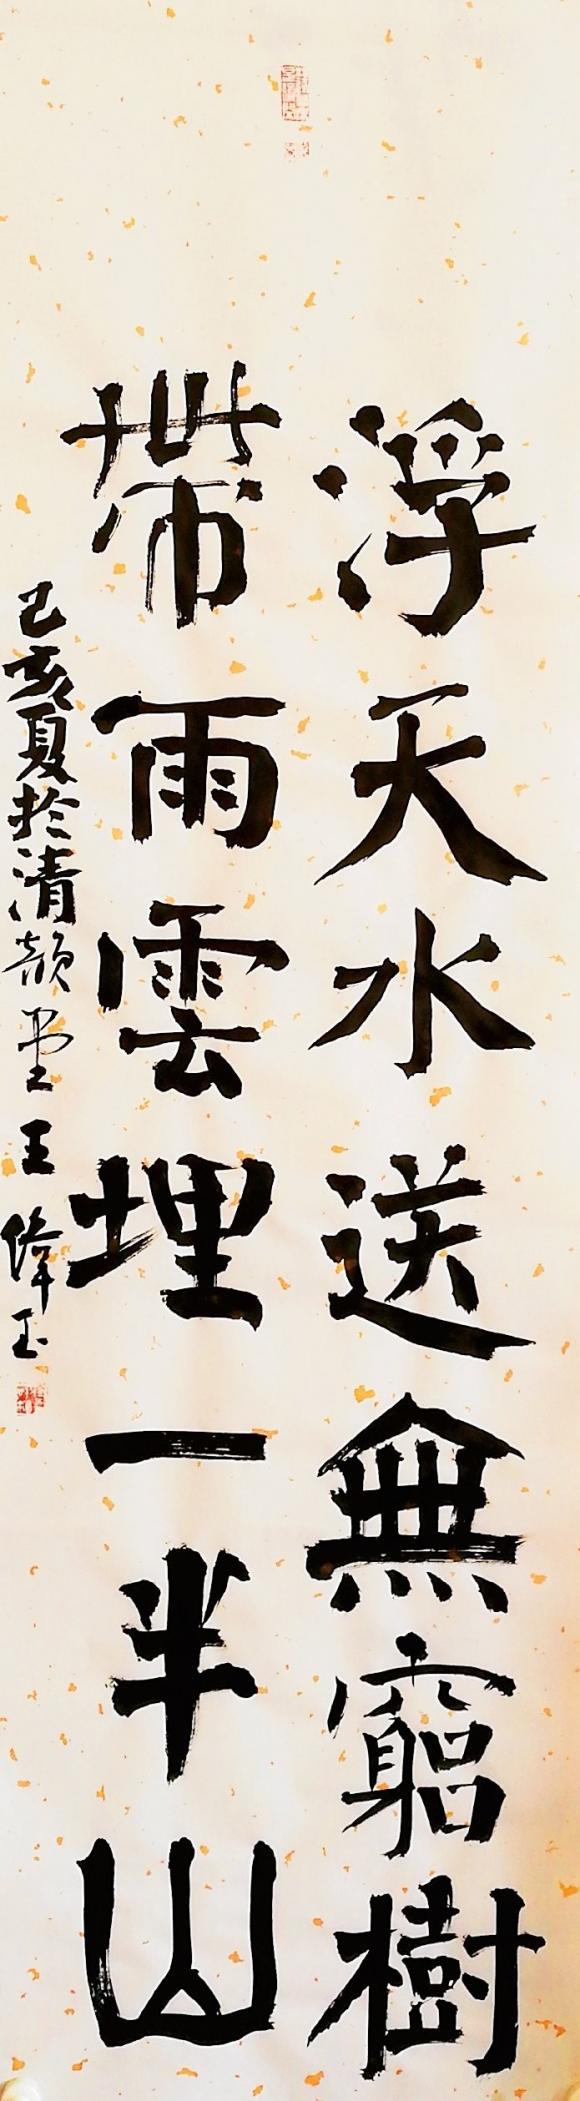 浮天水送無窮樹
帶雨雲埋一半山
己亥夏於清頏堂王偉玉